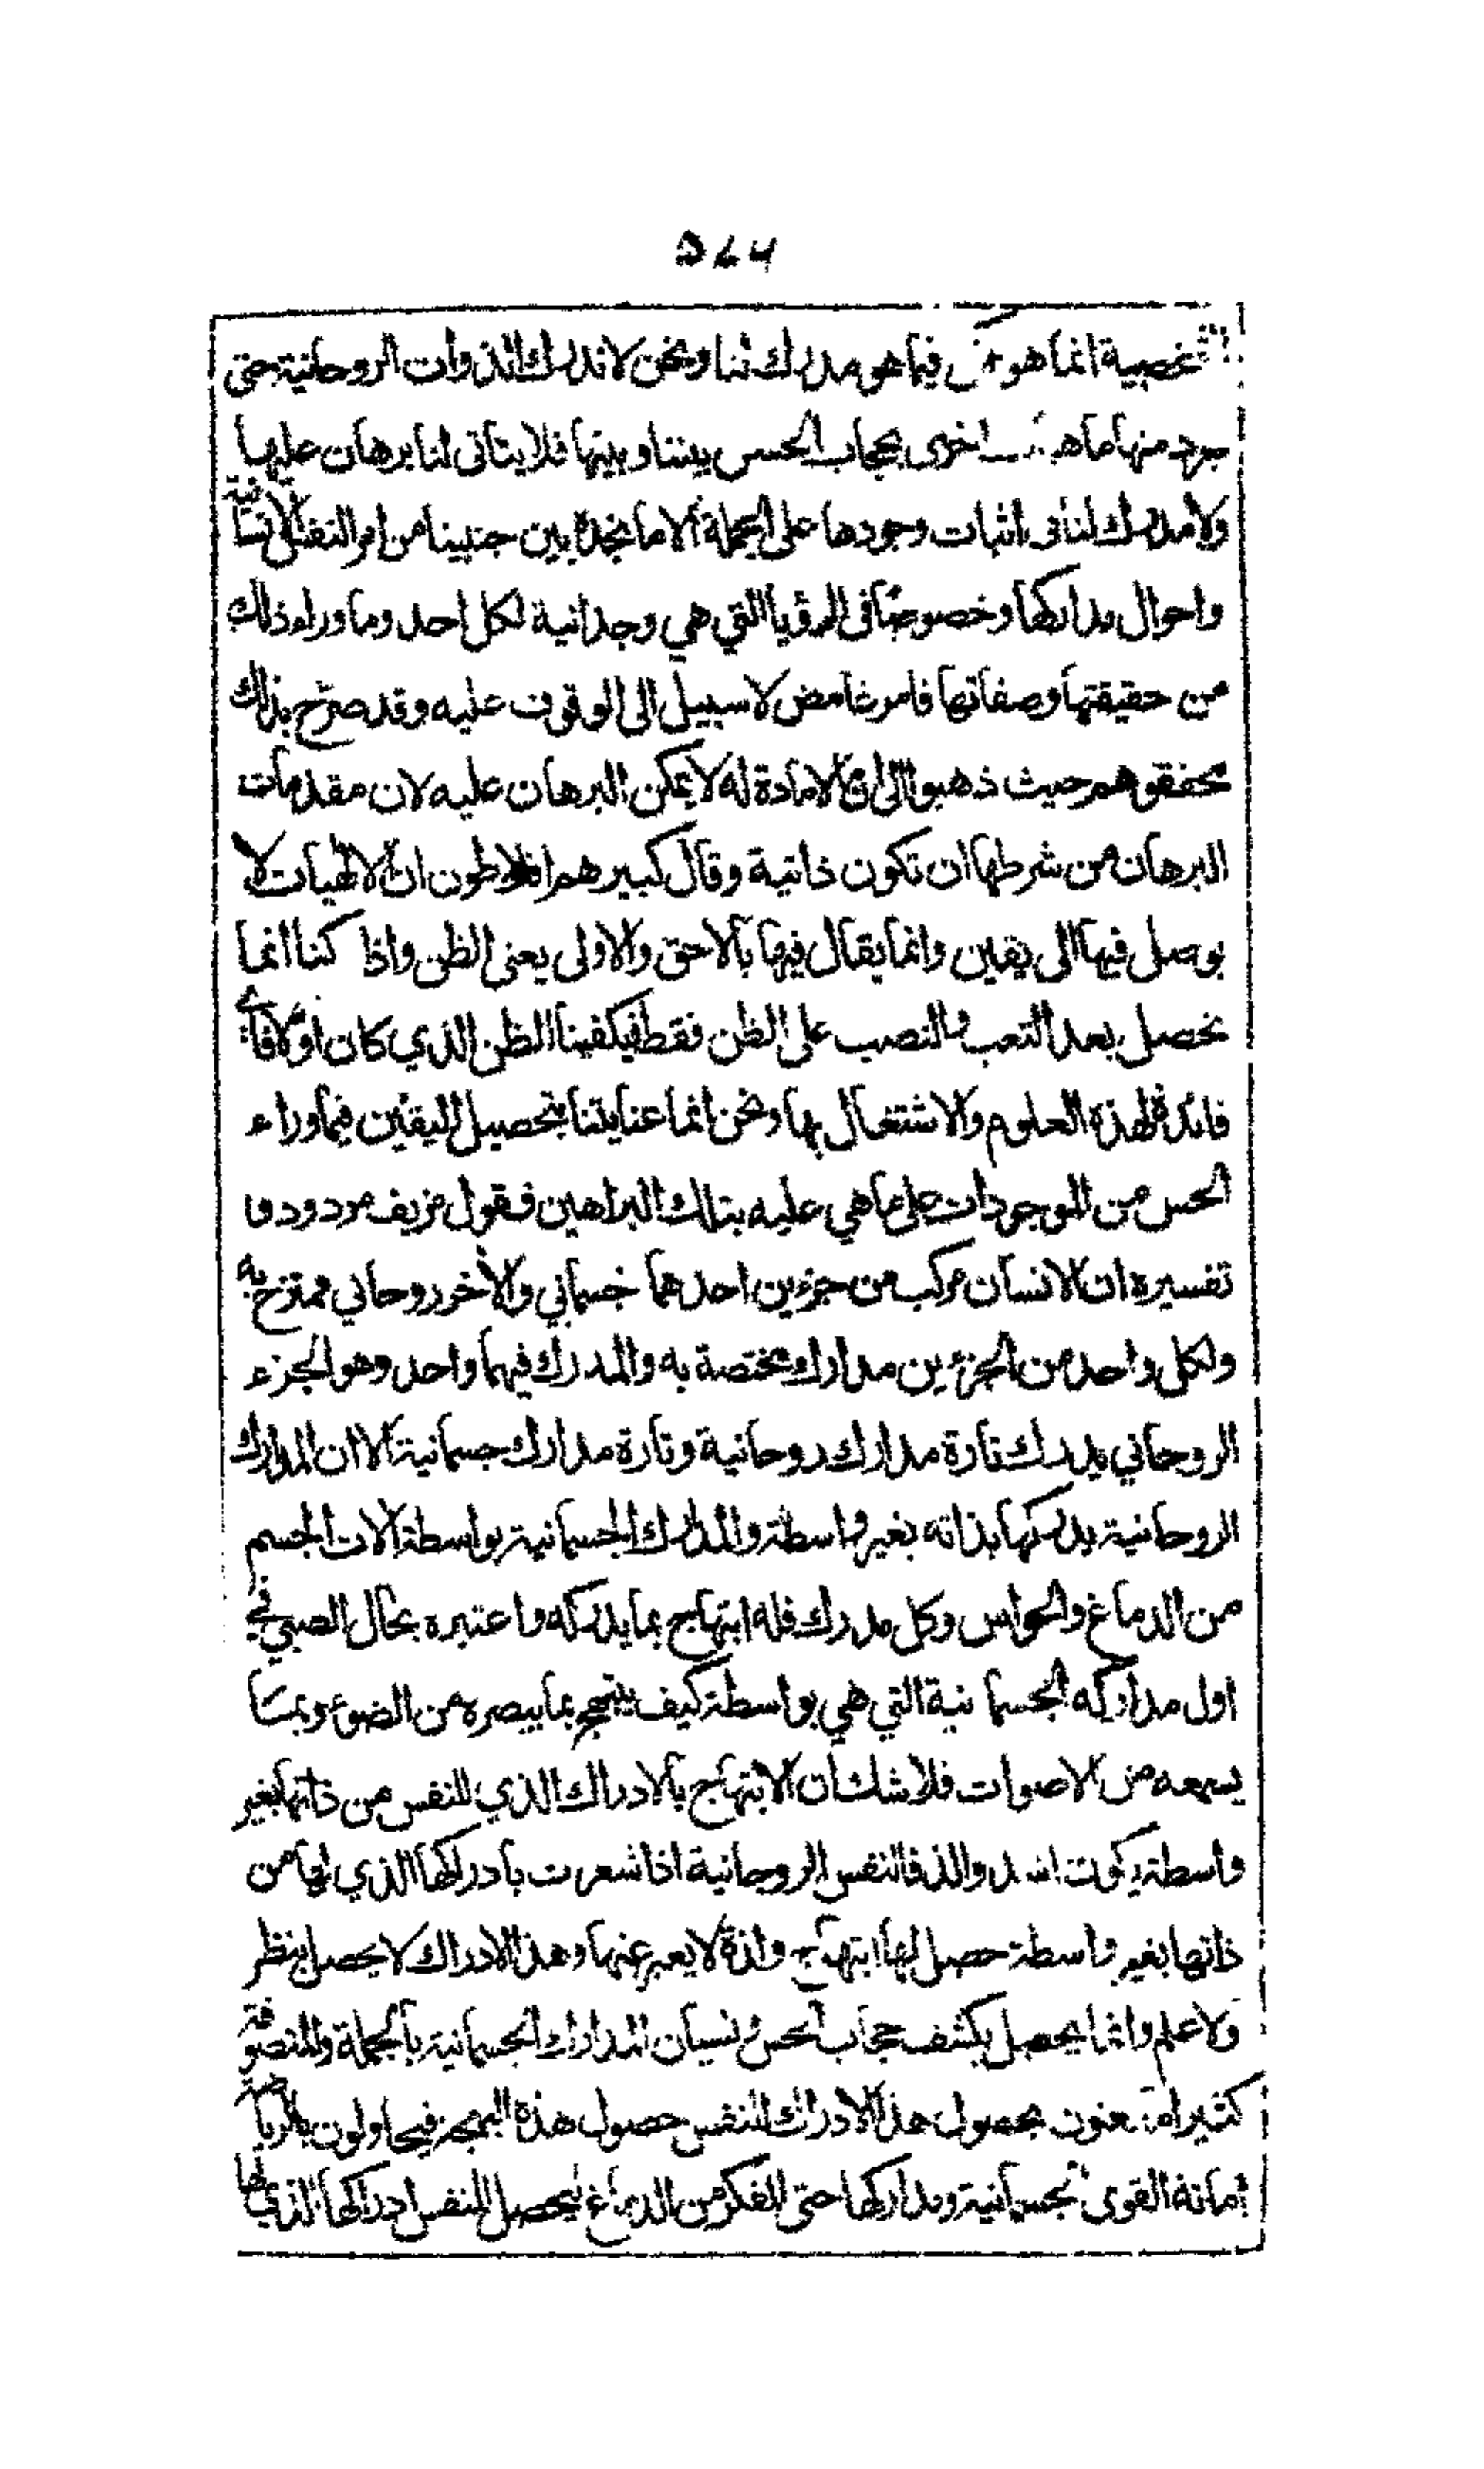 ۵۷۴
شخصية انما هو فيما هو مدرك لنا ونحن لا ندرك الذوات الروحانية حتى
نجرد منها ماهيات اخرى بحجاب الحس بيننا وبينها فلا يتاتى لنا برهان عليها
ولا مدرك لنا فى اثبات وجودها على الجملة الا ما نجده بين جنبينا من امر النفس الانسانية
واحوال مداركها وخصوصًا فى الرؤيا التي هي وجدانية لكل احد وما وراء ذلك
من حقيقتها وصفاتها فامر غامض لا سبيل الى الوقوف عليه وقد صرّح بذلك
محققوهم حيث ذهبوا الى ان ما لا مادة له لا يمكن البرهان عليه لان مقدمات
البرهان من شرطها ان تكون ذاتية وقال كبيرهم افلاطون ان الالهيات لا
يوصل فيها الى يقين وانما يقال فيها بالاحق والاولى يعنى الظن واذا كنا انما
نحصل بعد التعب والنصب على الظن فقط فيكفينا الظن الذي كان اولا فاي
فائدة لهذه العلوم والاشتغال بها ونحن انما عنايتنا بتحصيل اليقين فيما وراء
الحس من الموجودات على ما هي عليه بتلك البراهين فقول مزيف مردود وا
تفسيره ان الانسان مركب من جزءين احدهما جسماني والاخر روحاني ممتزج به
ولكل واحد من الجزءين مدارك مختصة به والمدرك فيهما واحد وهو الجزء
الروحاني يدرك تارة مدارك روحانية وتارة مدارك جسمانية الا ان المدارك
الروحانية يدركها بذاته بغير واسطة والمدارك الجسمانية بواسطة الات الجسم
من الدماغ والحواس وكل مدرك فله ابتهاج بما يدركه واعتبره بحال الصبي في
اول مداركه الجسمانية التي هي بواسطة كيف يبتهج بما يبصره من الضوء وبما
يسمعه من الاصوات فلا شك ان الابتهاج بالادراك الذي للنفس من ذاتها بغير
واسطة يكون اشد والذ فالنفس الروحانية اذا شعرت بادراكها الذي لها من
ذاتها بغير واسطة حصل لها ابتهاج ولذة لا يعبر عنها وهذا الادراك لا يحصل بنظر
ولا علم وانما يحصل بكشف حجاب الحس ونسيان المدارك الجسمانية بالجملة والمتصوفة
كثيرا ما يعنون بحصول هذا الادراك للنفس حصول هذه البهجة فيحاولون بالرياضة
اماتة القوى الجسمانية ومداركها حتى الفكر من الدماغ ليحصل للنفس ادراكها الذي لها